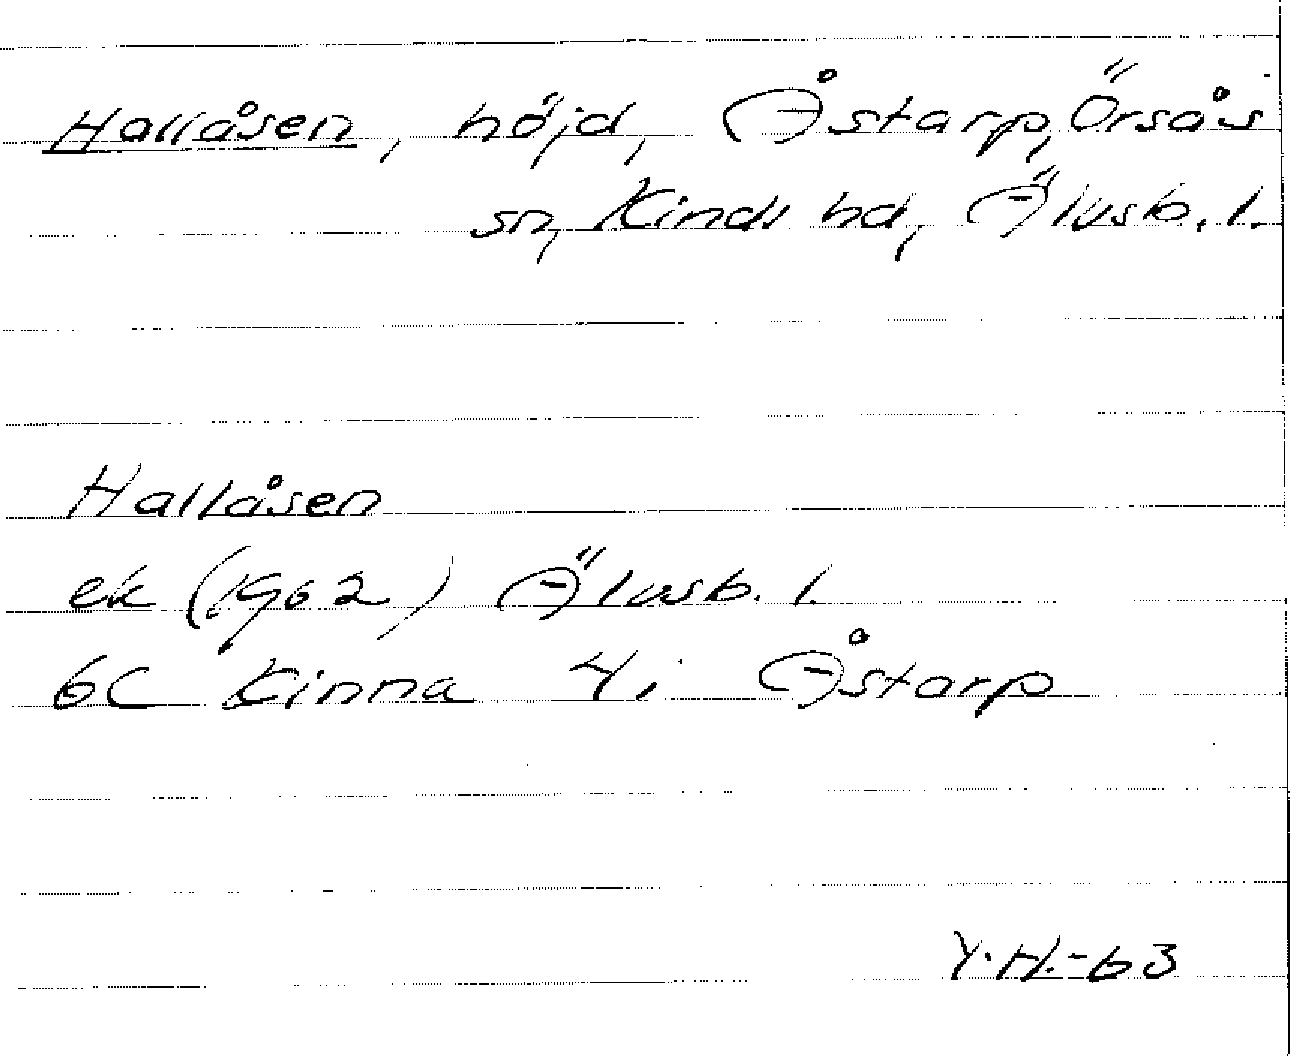 Hallåsen, höjd, Åstarp, Örsås
sn, Kinds hd, Älvsb. l.
Hallåsen
ek (1962) Älvsb. l.
6C Kinna 4i Åstarp
Y.H.-63